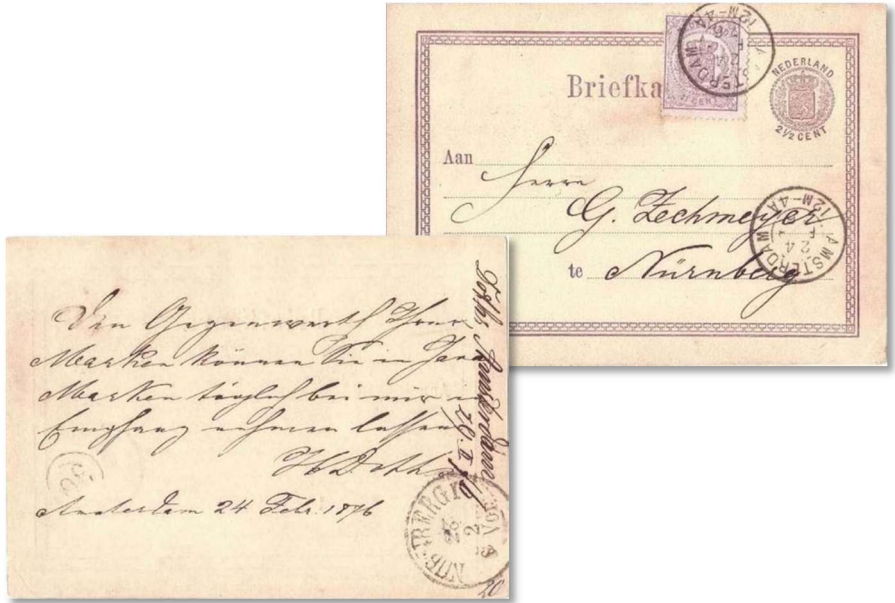 Briefka
NEDERLAND
2½ CENT
½ CENT
AMSTERDAM
24
F
12M-4A
Aan
Herrn
G. Zechmeyer
te Nürnberg
AMSTERDAM
24
F
12M-4A
Den Gegenwerth Ihrer
Marken können Sie in Java
Marken täglich bei mir in
Empfang nehmen lassen
Amsterdam 24 Febr. 1876
Amsterdam
NUERNBERG I
20